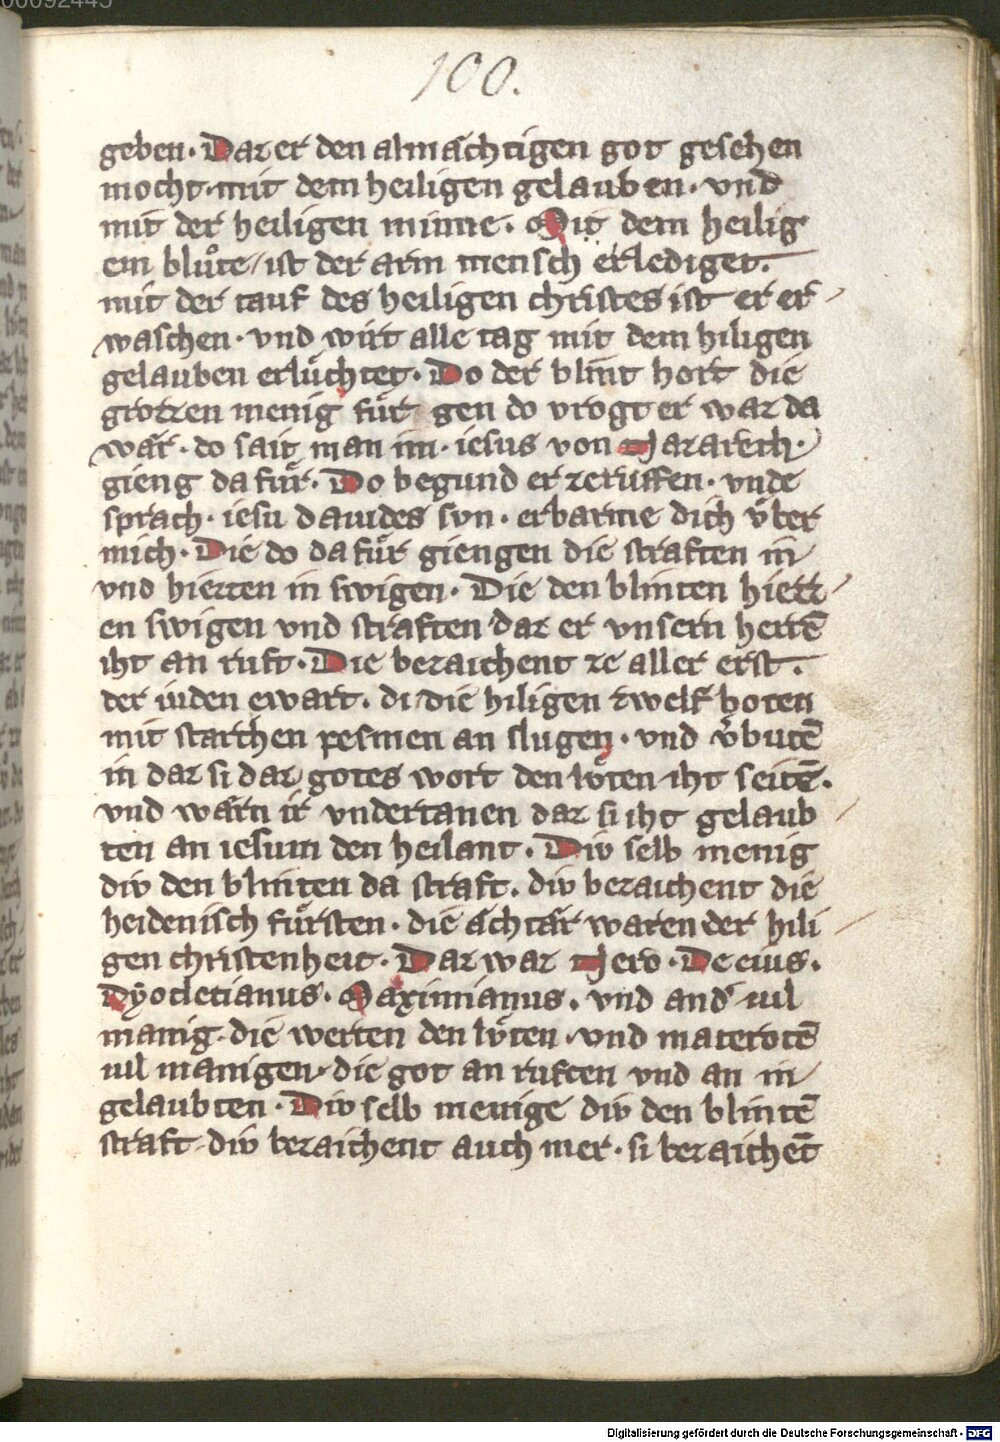 00092445
100.
geben. Daz er den almachtigen got gesehen
mocht. mit dem heiligen gelauben. vnd
mit der heiligen minne. Mit dem heilig
em bluͦte ist der arm mensch erlediget.
mit der tauf des heiligen christes ist er er
waschen. vnd wirt alle tag mit dem hiligen
gelauben erluͤchtet. Do der blint hort die
grozzen menig fuͤr gen do vrogt er waz da
waͤr. do sait man im. iesus von Nazareth.
gieng da fuͤr. Do begund er ze ruͤffen. vnde
sprach. iesu dauides svn. erbarme dich vͤber
mich. Die do da fuͤr giengen die straften in
vnd hiezzen in swigen. Die den blinten hiezz
en swigen vnd straften daz er vnsern herrē
iht an ruft. Die bezaichent ze aller erst.
der iuden ewart. di die hiligen zwelf boten
mit starchen pesmen an slugen. vnd v̾butē
in daz si daz gotes wort den lvͤten iht seitē.
vnd warn ir vndertanen daz si iht gelaub
ten an iesum den heilant. Div selb menig
div den blinten da straft. div bezaichent die
heidenisch fuͤrsten. die aͤchtaͤr waren der hili
gen christenheit. Daz waz Nero. Decius.
Dyocletianus. Maximianus. vnd and̾ vil
manig. die werten den lvͤten. vnd materotē
vil manigen. die got an ruften vnd an in
gelaubten. Div selb menige div den blintē
straft. div bezaichent auch mer. si bezaichēt
Digitalisierung gefördert durch die Deutsche Forschungsgemeinschaft - DFG